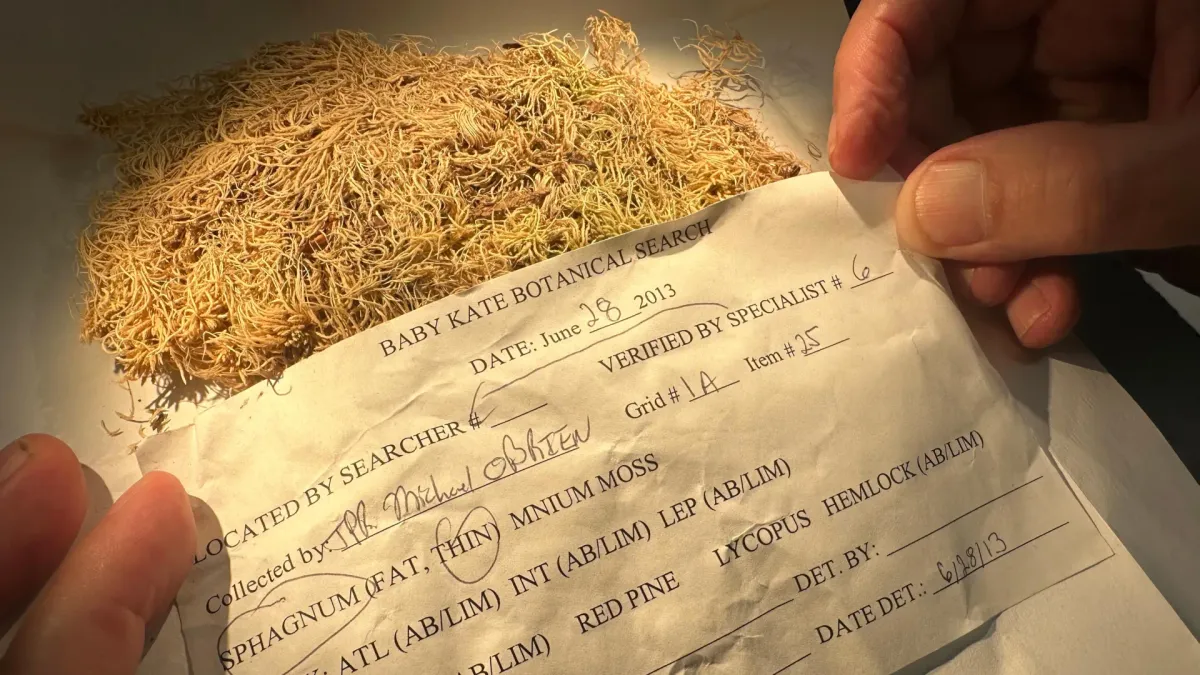 BABY KATE BOTANICAL SEARCH
DATE: June 28 2013
LOCATED BY SEARCHER # VERIFIED BY SPECIALIST # 6
Collected by: TPR. Michael O'BRIEN Grid # 1A Item # 25
SPHAGNUM (FAT, THIN) MNIUM MOSS
ATL (AB/LIM) INT (AB/LIM) LEP (AB/LIM)
AB/LIM) RED PINE LYCOPUS HEMLOCK (AB/LIM)
DET. BY:
DATE DET.: 6/28/13